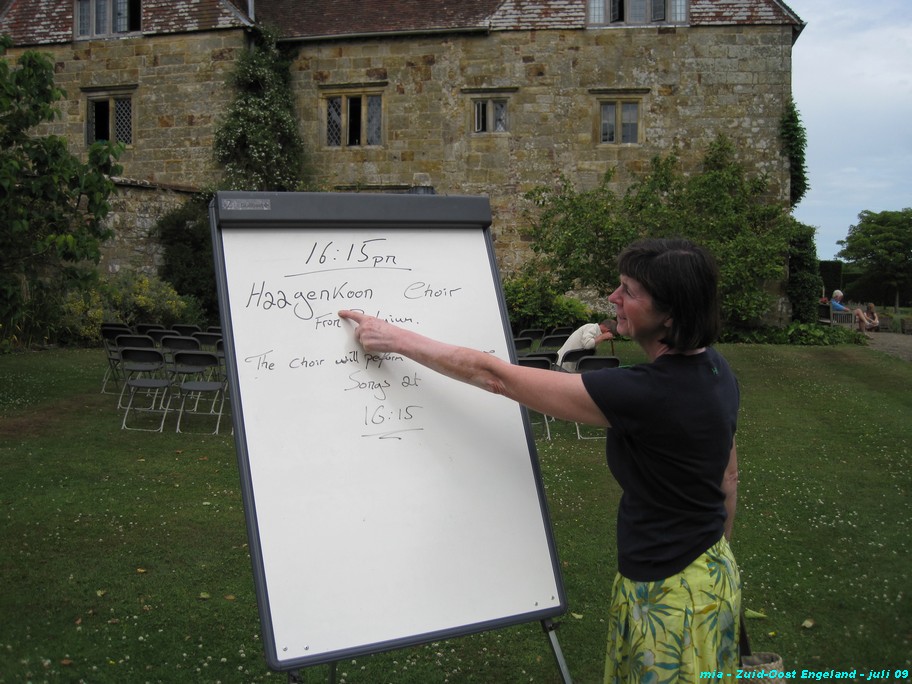 16:15pm
Haagenkoon Choir
From Belgium.
The choir will perform
Songs at
16:15
mia - Zuid-Oost Engeland - juli 09